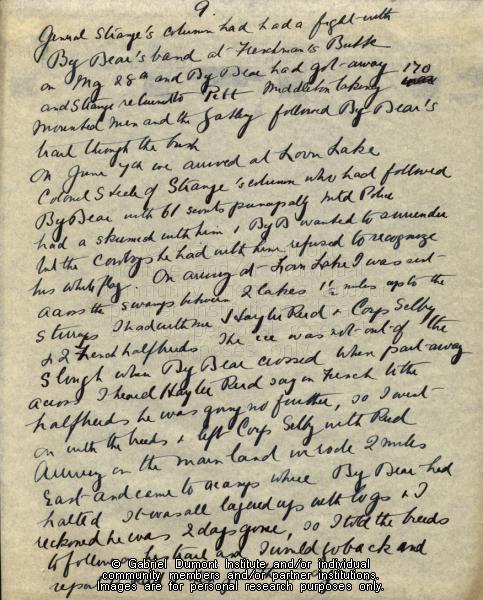 9.
General Strange's column had had a fight with
Big Bear's band at Frenchman's Butte
on May 28th and Big Bear had got away
and Strange returned to Pitt Middleton taking 170
mounted men and the Gatling followed Big Bear's
trail through the bush
On June 7th we arrived at Loon Lake
Colonel Steele of Strange's column who had followed
Big Bear with 61 scouts principally Mtd Police
had a skirmish with him & Big B wanted to surrender
but the Cowboys he had with him refused to recognize
his white flag. On arriving at Loon Lake I was sent
across the swamps between 2 lakes 1½ miles up to the
stirrups I had with me Hayter Reed & Corp Selby
& 2 French halfbreeds The ice was not out of the
Slough when Big Bear crossed When part away
across I heard Hayter Reed say in French to the
halfbreeds he was going no further, so I went
on with the breeds & left Corp Selby with Reed
Arriving on the main land we rode 2 miles
East and came to a camp where Big Bear had
halted It was all layered up with logs & I
reckoned he was 2 days gone, so I told the breeds
to follow his trail and I would go back and
report
© Gabriel Dumont Institute and/or individual
community members and/or partner institutions.
Images are for personal research purposes only.